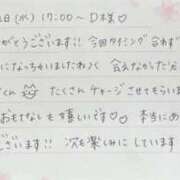 日(水) 17:00〜 D様♡
がとうございます!! 今回タイミング合わず
になっちゃいましたね 会えなかった分
くん たくさんチャージさせてもらいま
おもてなしも嬉しいです♡ 本当にあ
ございます!! 次も楽しみにしています